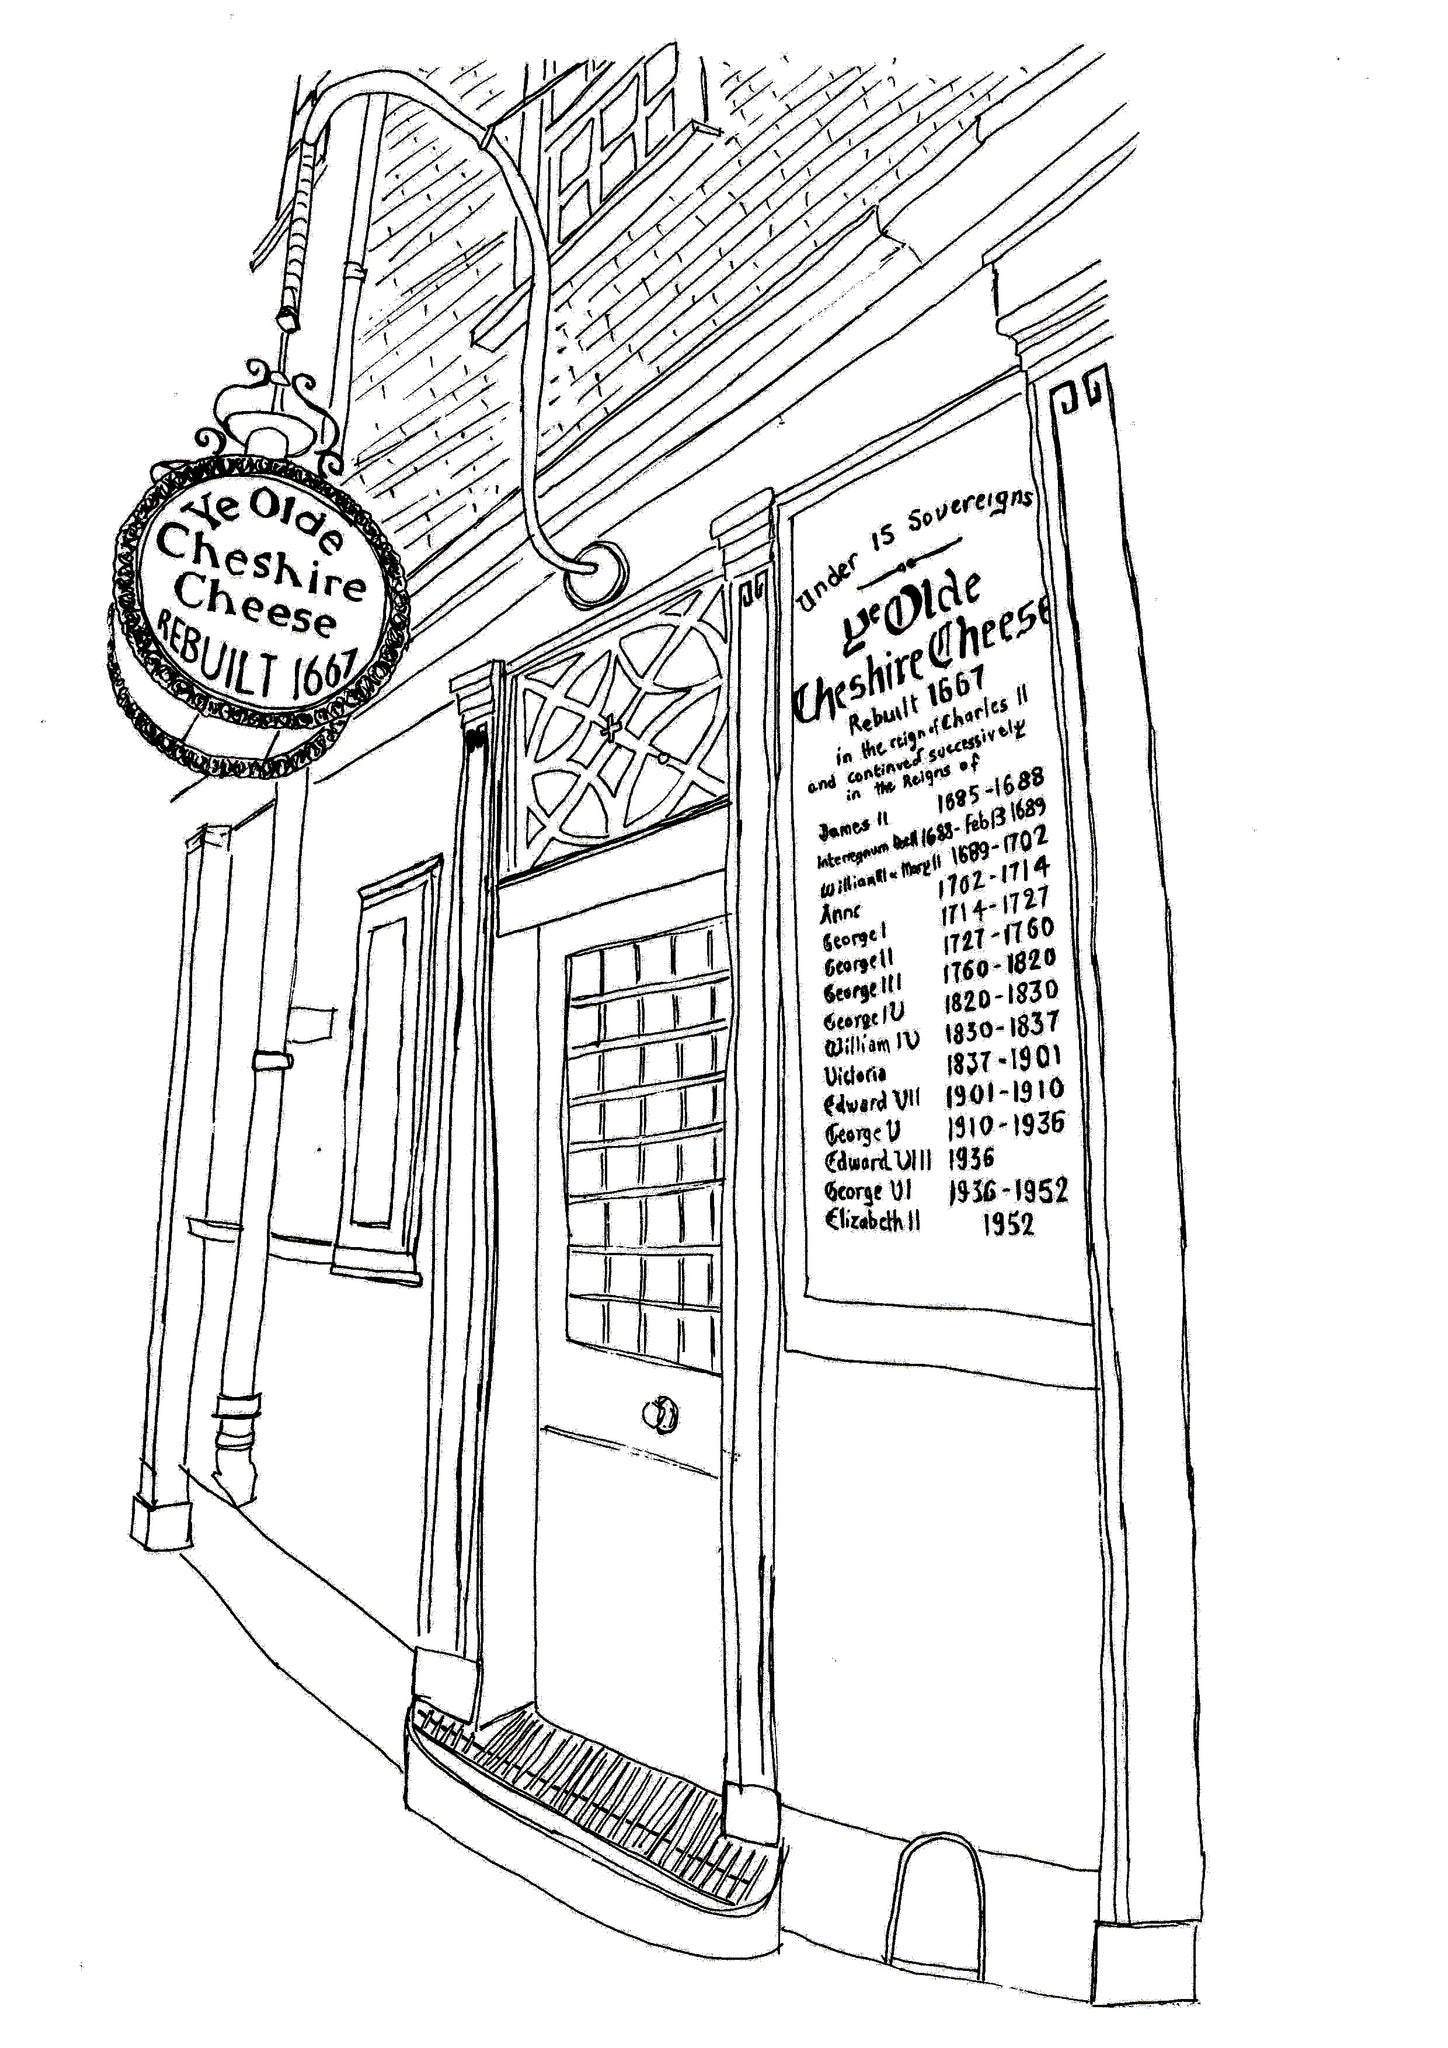 Ye Olde
Cheshire
Cheese
REBUILT 1667
Under 15 Sovereigns
Ye Olde
Cheshire Cheese
Rebuilt 1667
in the reign of Charles II
and continued successively
in the Reigns of
James II 1685-1688
Interregnum 1688-Feb 13 1689
William III & Mary II 1689-1702
Anne 1702-1714
George I 1714-1727
George II 1727-1760
George III 1760-1820
George IV 1820-1830
William IV 1830-1837
Victoria 1837-1901
Edward VII 1901-1910
George V 1910-1936
Edward VIII 1936
George VI 1936-1952
Elizabeth II 1952